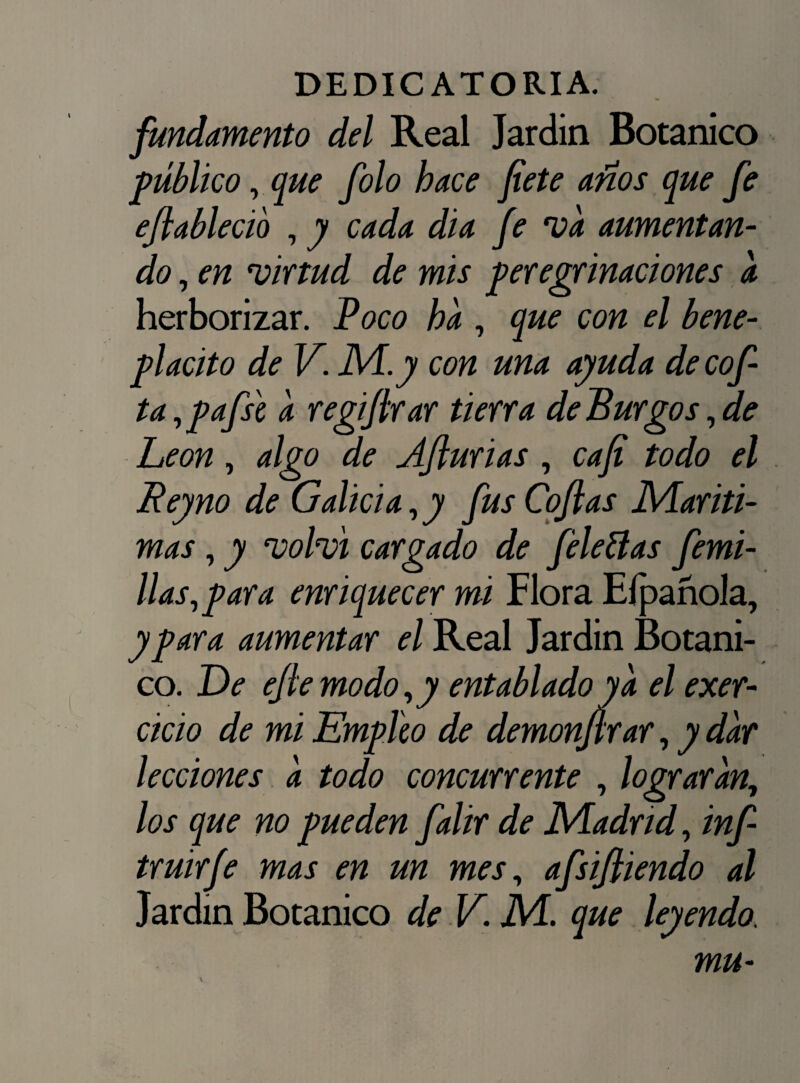 DEDICATORIA.
fundamento del Real Jardin Botanico
público, que ſolo hace ſiete años que ſe
eſtableciò , y cada dia ſe và aumentan-
do, en virtud de mis peregrinaciones à
herborizar. Poco hà , que con el bene-
placito de V. M. y con una ayuda de coſ-
ta, paſsè à regiſtrar tierra de Burgos, de
Leon , algo de Aſturias , caſi todo el
Reyno de Galicia, y ſus Coſtas Mariti-
mas , y volvì cargado de ſelectas ſemi-
llas, para enriquecer mi Flora Eſpañola,
y para aumentar el Real Jardin Botani-
co. De eſte modo, y entablado yà el exer-
cicio de mi Emplèo de demonſtrar, y dàr
lecciones à todo concurrente , lograràn,
los que no pueden ſalir de Madrid, inſ-
truirſe mas en un mes, aſsiſtiendo al
Jardin Botanico de V. M. que leyendo
mu-